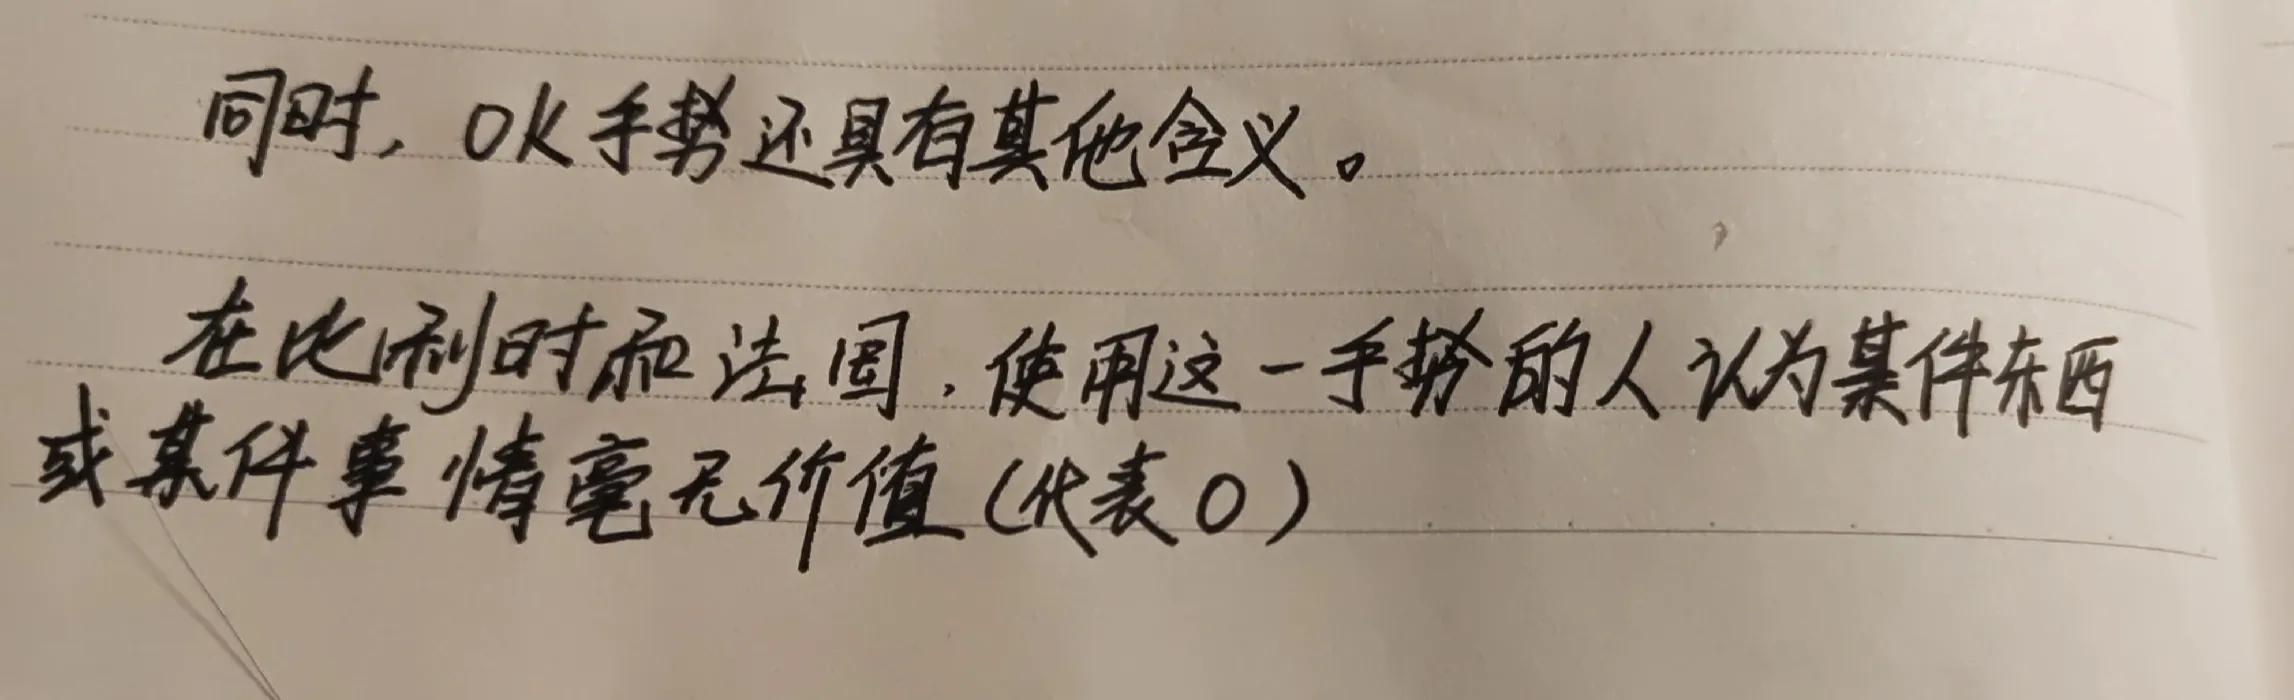 同时，OK手势还具有其他含义。
在比利时和法国，使用这一手势的人认为某件东西
或某件事情毫无价值（代表0）